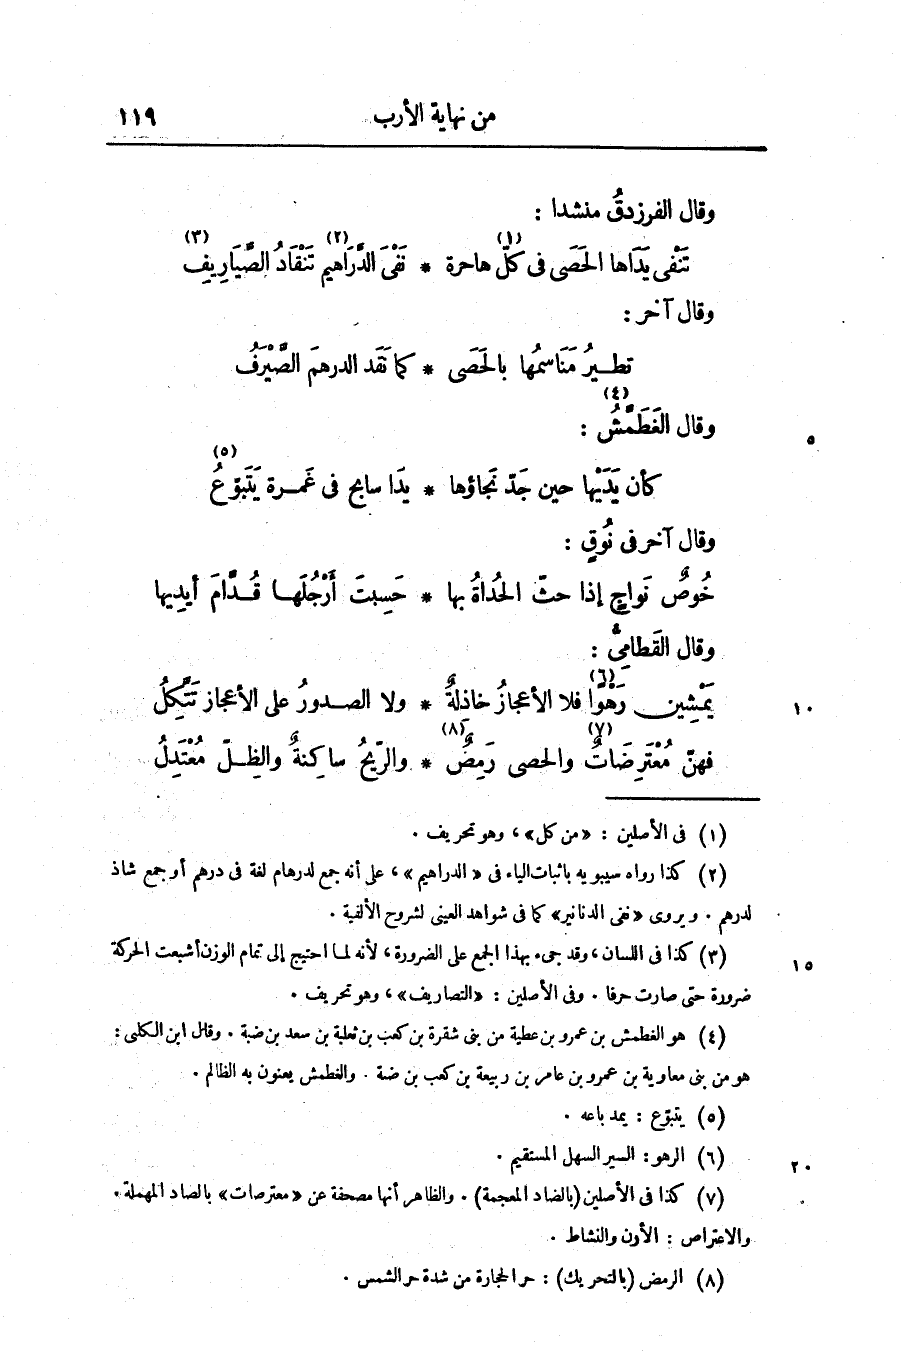 من نهاية الأرب ١١٩
وقال الفرزدقُ منشدا :
تَنْفِى يَدَاها الحَصَى فى كلّ (١) هاجرة * نَفْىَ الدَّرَاهِيمِ (٢) تَنْقَادُ الصَّيَارِيفِ (٣)
وقال آخر :
تطيرُ مَنَاسمُها بالحَصَى * كما نَقَد الدرهمَ الصَّيْرَفُ
وقال الغَطَمَّشُ (٤) : ٥
كأن يَدَيْها حين جَدّ نَجاؤها * يدَا سابح فى غَمرة يَتَبوّعُ (٥)
وقال آخر فى نُوقٍ :
خُوصٌ نَواجٍ إذا حثّ الحُداةُ بها * حَسِبتَ أَرْجُلَها قُدَّامَ أيديها
وقال القَطامىُّ :
يَمْشِين رَهْوًا (٦) فلا الأعجازُ خاذلةٌ * ولا الصدورُ على الأعجاز تَتَّكِلُ ١٠
فهنّ مُعْتَرِضَاتٌ (٧) والحصى رَمِضٌ (٨) * والرّيحُ ساكِنةٌ والظِلّ مُعْتَدِلُ
(١) فى الأصلين : «من كل» ، وهو تحريف .
(٢) كذا رواه سيبويه باثبات الياء فى «الدراهيم» ، على أنه جمع لدرهام لغة فى درهم أو جمع شاذ
لدرهم . ويروى «نفى الدنانير» كما فى شواهد العينى لشروح الألفية .
(٣) كذا فى اللسان ، وقد جىء بهذا الجمع على الضرورة ، لأنه لما احتيج إلى تمام الوزن أشبعت الحركة ١٥
ضرورة حتى صارت حرفا . وفى الأصلين : «التصاريف» ، وهو تحريف .
(٤) هو الغطمش بن عمرو بن عطية من بنى شقرة بن كعب بن ثعلبة بن سعد بن ضبة . وقال ابن الكلبى :
هو من بنى معاوية بن عمرو بن عامر بن ربيعة بن كعب بن ضبة . والغطمش يعنون به الظالم .
(٥) يتبوّع : يمد باعه .
(٦) الرهو : السير السهل المستقيم . ٢٠
(٧) كذا فى الأصلين (بالضاد المعجمة) . والظاهر أنها مصحفة عن «معترصات» بالصاد المهملة .
والاعتراص : الأون والنشاط .
(٨) الرمض (بالتحريك) : حر الحجارة من شدة حر الشمس .